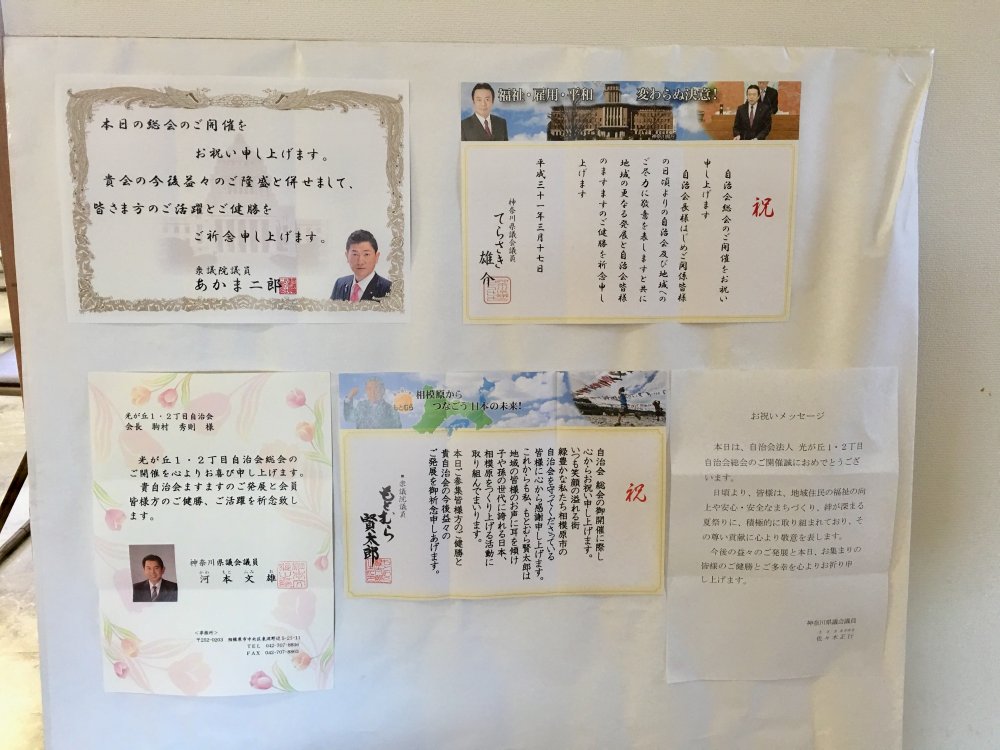 本日の総会のご開催を
お祝い申し上げます。
貴会の今後益々のご隆盛と併せまして、
皆さま方のご活躍とご健勝を
ご祈念申し上げます。
衆議院議員
あかま二郎
福祉・雇用・平和 変わらぬ決意!
祝
自治会総会のご開催をお祝い
申し上げます
自治会長様はじめご関係皆様
の日頃よりの自治会及び地域への
ご尽力に敬意を表しますと共に
地域の更なる発展と自治会皆様
のますますのご健勝を祈念申し
上げます
平成三十一年三月十七日
神奈川県議会議員
てらさき雄介
光が丘1・2丁目自治会
会長 駒村 秀則 様
光が丘1・2丁目自治会総会の
ご開催を心よりお喜び申し上げます。
貴自治会ますますのご発展と会員
皆様方のご健勝、ご活躍を祈念致し
ます。
神奈川県議会議員
かわ もと ふみ お
河本文雄
<事務所>
〒252-0203 相模原市中央区東淵野辺5-21-11
TEL 042-707-8896
FAX 042-707-8863
相模原から
つなごう日本の未来!
もとむら
祝
自治会 総会の御開催に際し
心からお祝い申し上げます。
いつも笑顔の溢れる街
緑豊かな私たち相模原市の
自治会を守ってくださっている
皆様に心から感謝申し上げます。
これからも私、もとむら賢太郎は
地域の皆様のお声に耳を傾け
子や孫の世代に誇れる日本、
相模原をつくり上げる活動に
取り組んでまいります。
本日ご参集皆様方のご健勝と
貴自治会の今後益々の
ご発展を御祈念申しあげます。
衆議院議員
もとむら賢太郎
お祝いメッセージ
本日は、自治会法人 光が丘1・2丁目
自治会総会のご開催誠におめでとうござ
います。
日頃より、皆様は、地域住民の福祉の向
上や安心・安全なまちづくり、絆が深まる
夏祭りに、積極的に取り組まれており、そ
の尊い貢献に心より敬意を表します。
今後の益々のご発展と本日、お集まりの
皆様のご健勝とご多幸を心よりお祈り申
し上げます。
神奈川県議会議員
佐々木正行